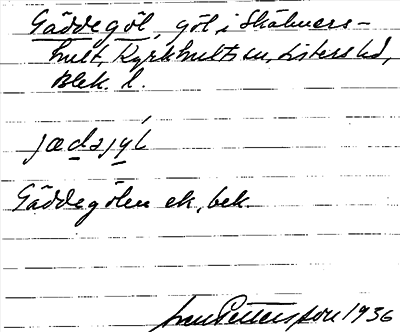 Gäddegöl, göl i Skälmers-
hult, Kyrkhults sn, Listers hd,
Blek. l.
jædəjy̱l
Gäddegölen ek., bek.
Pettersson 1936